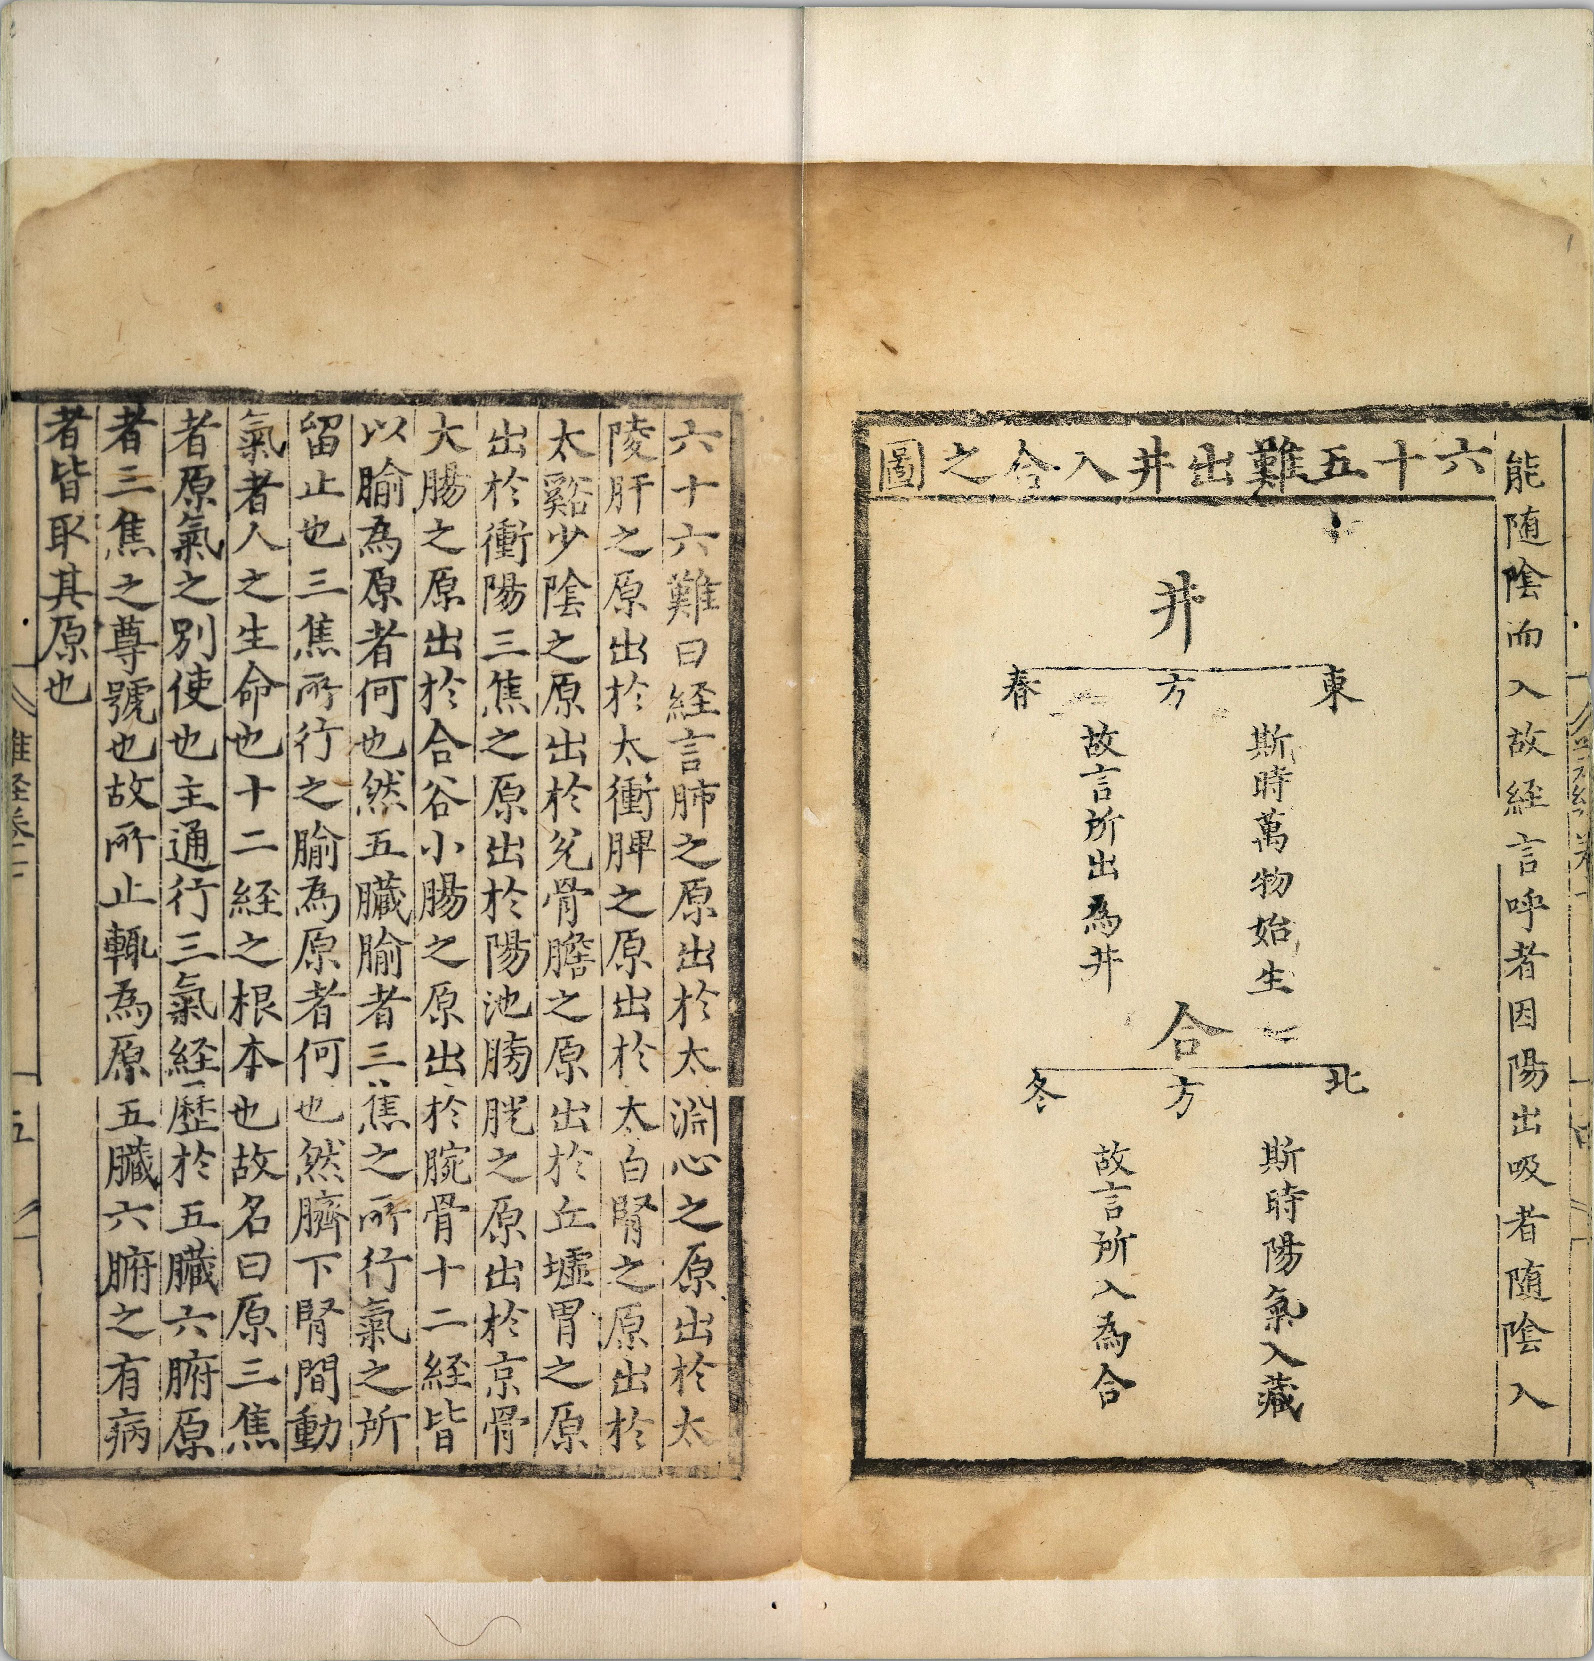 能随陰而入故経言呼者因陽出吸者随陰入
六十五難出井入合之圖
井
東方春
斯時萬物始生
故言所出為井
合
北方冬
斯時陽氣入藏
故言所入為合
六十六難曰経言肺之原出於太淵心之原出於太
陵肝之原出於太衝脾之原出於太白腎之原出於
太谿少陰之原出於兊骨膽之原出於丘墟胃之原
出於衝陽三焦之原出於陽池膀胱之原出於京骨
大腸之原出於合谷小腸之原出於腕骨十二経皆
以腧為原者何也然五臓腧者三焦之所行氣之所
留止也三焦所行之腧為原者何也然臍下腎間動
氣者人之生命也十二経之根本也故名曰原三焦
者原氣之別使也主通行三氣経歷於五臓六腑原
者三焦之尊號也故所止輒為原五臓六腑之有病
者皆取其原也
五